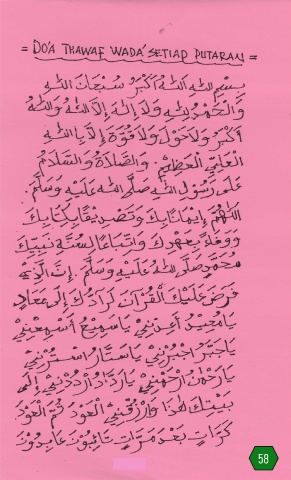 = DO'A THAWAF WADA' SETIAP PUTARAN =
بِسْمِ اللهِ اَللهُ اَكْبَرُ سُبْحَانَ اللهِ
وَالْحَمْدُ لِلهِ وَلَا إِلٰهَ إِلَّا اللهُ وَاللهُ
اَكْبَرُ وَلَا حَوْلَ وَلَا قُوَّةَ إِلَّا بِاللهِ
الْعَلِيِّ الْعَظِيْمِ. وَالصَّلَاةُ وَالسَّلَامُ
عَلَى رَسُوْلِ اللهِ صَلَّى اللهُ عَلَيْهِ وَسَلَّمَ.
اَللّٰهُمَّ إِيْمَانًا بِكَ وَتَصْدِيْقًا بِكِتَابِكَ
وَوَفَاءً بِعَهْدِكَ وَاتِّبَاعًا لِسُنَّةِ نَبِيِّكَ
مُحَمَّدٍ صَلَّى اللهُ عَلَيْهِ وَسَلَّمَ. إِنَّ الَّذِيْ
فَرَضَ عَلَيْكَ الْقُرْآنَ لَرَادُّكَ إِلَى مَعَادٍ
يَا مُعِيْدُ أَعِدْنِيْ يَا سَمِيْعُ أَسْمِعْنِيْ
يَا جَبَّارُ اجْبُرْنِيْ يَا سَتَّارُ اسْتُرْنِيْ
يَا رَحْمٰنُ ارْحَمْنِيْ يَا رَدَّادُ ارْدُدْنِيْ إِلَى
بَيْتِكَ هٰذَا وَارْزُقْنِيْ الْعَوْدَ ثُمَّ الْعَوْدَ
كَرَّاتٍ بَعْدَ مَرَّاتٍ تَائِبُوْنَ عَابِدُوْنَ
58